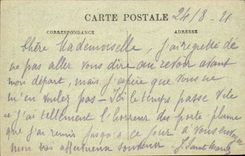 CARTE POSTALE 24/8. 21
CORRESPONDANCE ADRESSE
Chère Mademoiselle, j'ai regretté de
ne pas aller vous dire au revoir avant
mon départ, mais j'espère que vous ne
m'en voulez pas - Ici le temps passe vite
et j'ai tellement l'horreur des porte plume
que j'ai remis jusqu'à ce jour à vous envoyer
mon bien affectueux souvenir